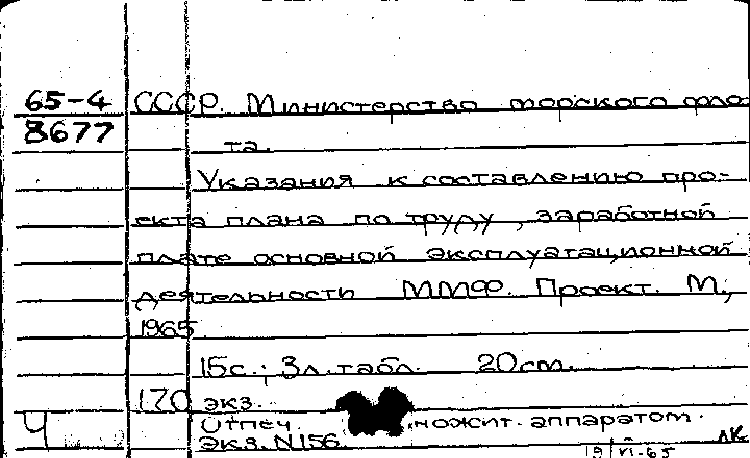 65-4 СССР. Министерство морского фло-
8677 та.
Указания к составлению про-
екта плана по труду, заработной
плате основной эксплуатационной
деятельности ММФ. Проект. М.,
1965
15с.; 3л.табл. 20см.
170 экз.
Отпеч. множит. аппаратом.
Ч экз. N156
ЛК
19/VI-65